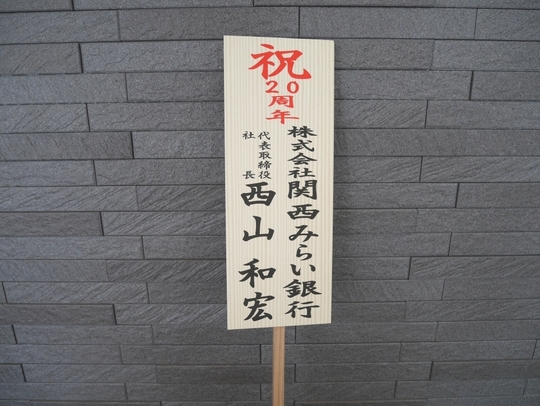 祝
20
周年
株式会社関西みらい銀行
代表取締役
社長
西山和宏